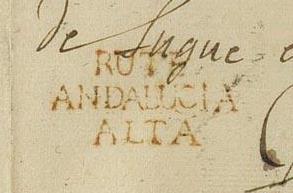 de Luque
RUTE
ANDALUCIA
ALTA